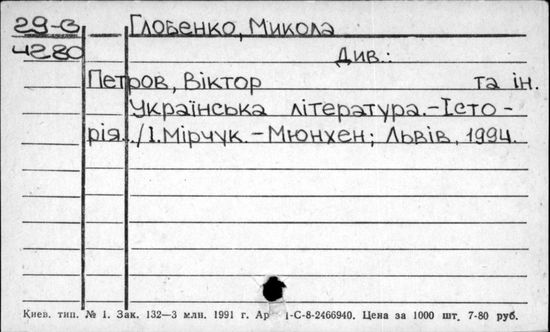 29-G Глобенко, Микола
4280 Див.:
Петров, Віктор та ін.
Українська література.-Істо-
рія../І.Мірчук.-Мюнхен; Львів, 1994.
Киев. тип. № 1. Зак. 132—3 млн. 1991 г. Ар 1-С-8-2466940. Цена за 1000 шт. 7-80 руб.